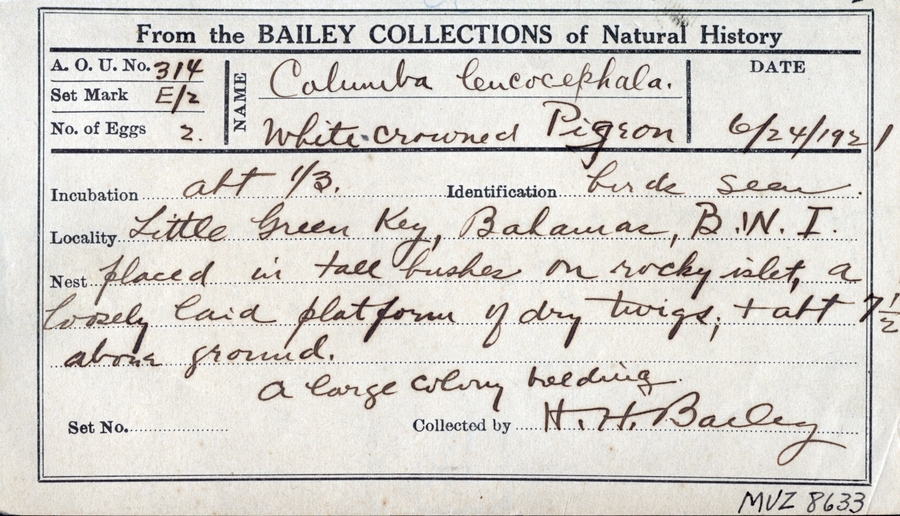 From the BAILEY COLLECTIONS of Natural History
A. O. U. No. 314
Set Mark E/2
No. of Eggs 2.
NAME
Columba leucocephala.
White-crowned Pigeon
DATE
6/24/1921
Incubation abt 1/3. Identification birds seen.
Locality Little Green Key, Bahamas, B.W.I.
Nest placed in tall bushes on rocky islet, a
loosely laid platform of dry twigs, + abt 7 1/2
above ground.
A large colony
Set No. Collected by H. H. Bailey
MVZ 8633